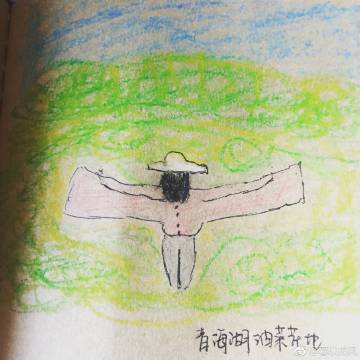 青海湖油菜花地